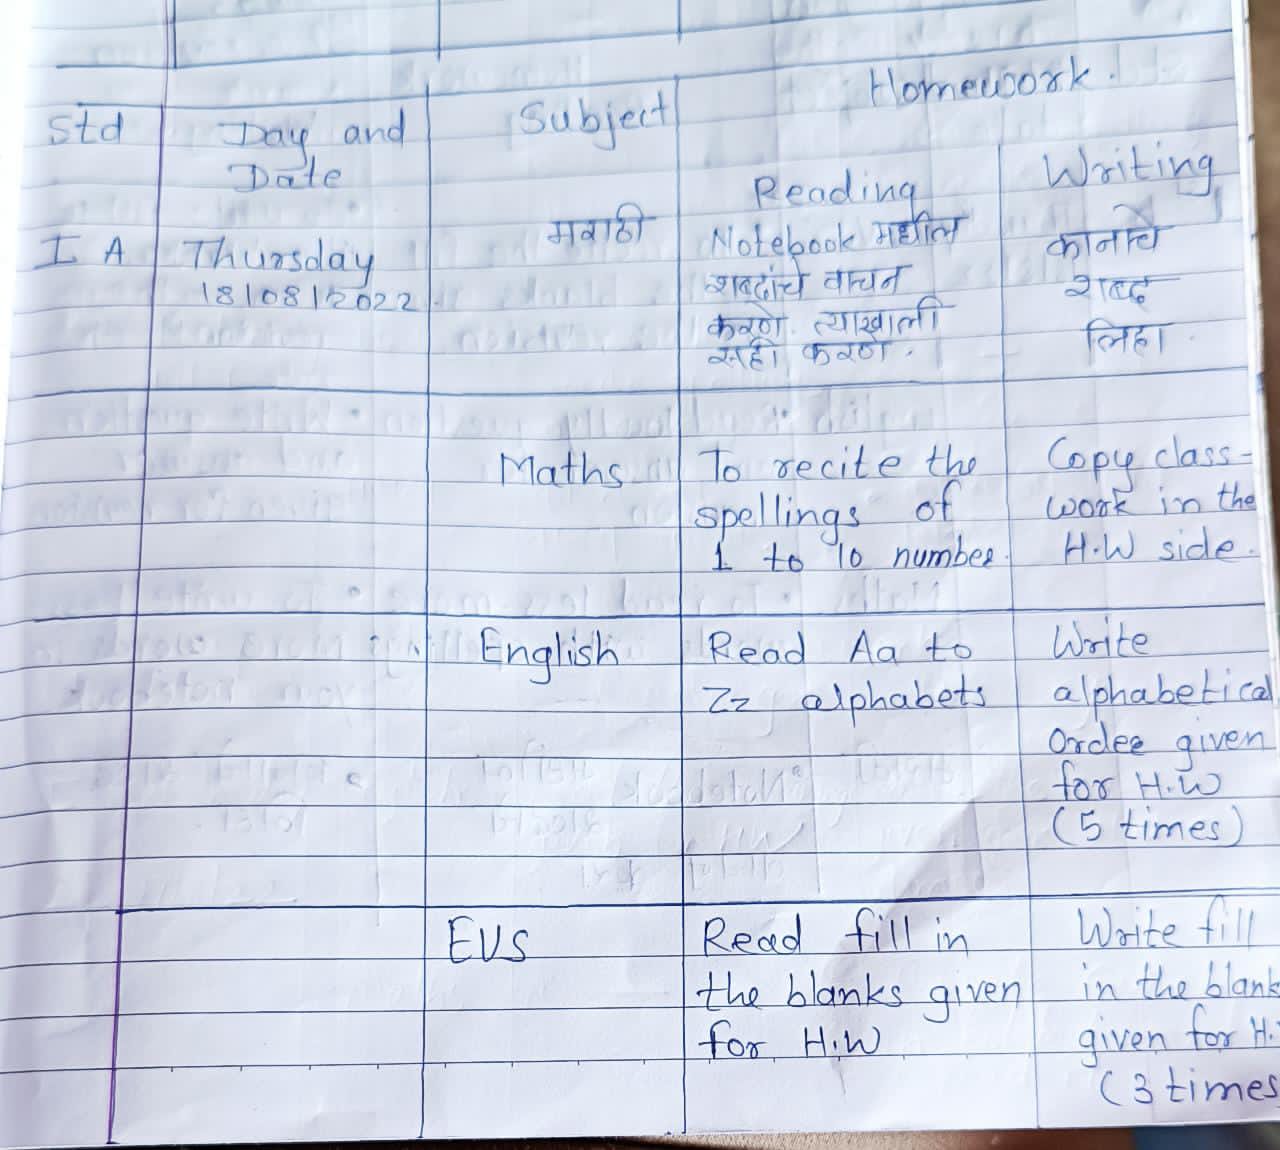 Homework.
Std
Day and
Date
Subject
Reading
Writing
I A
Thursday
18/08/2022
मराठी
Notebook मधील
शब्दांचे वाचन
करणे. त्याखाली
सही करणे.
कानाचे
शब्द
लिहा.
Maths
To recite the
spellings of
1 to 10 number.
Copy class-
work in the
H.W side.
English
Read Aa to
Zz alphabets
Write
alphabetical
Order given
for H.W
(5 times)
EVS
Read fill in
the blanks given
for H.W
Write fill
in the blank
given for H.
(3 times